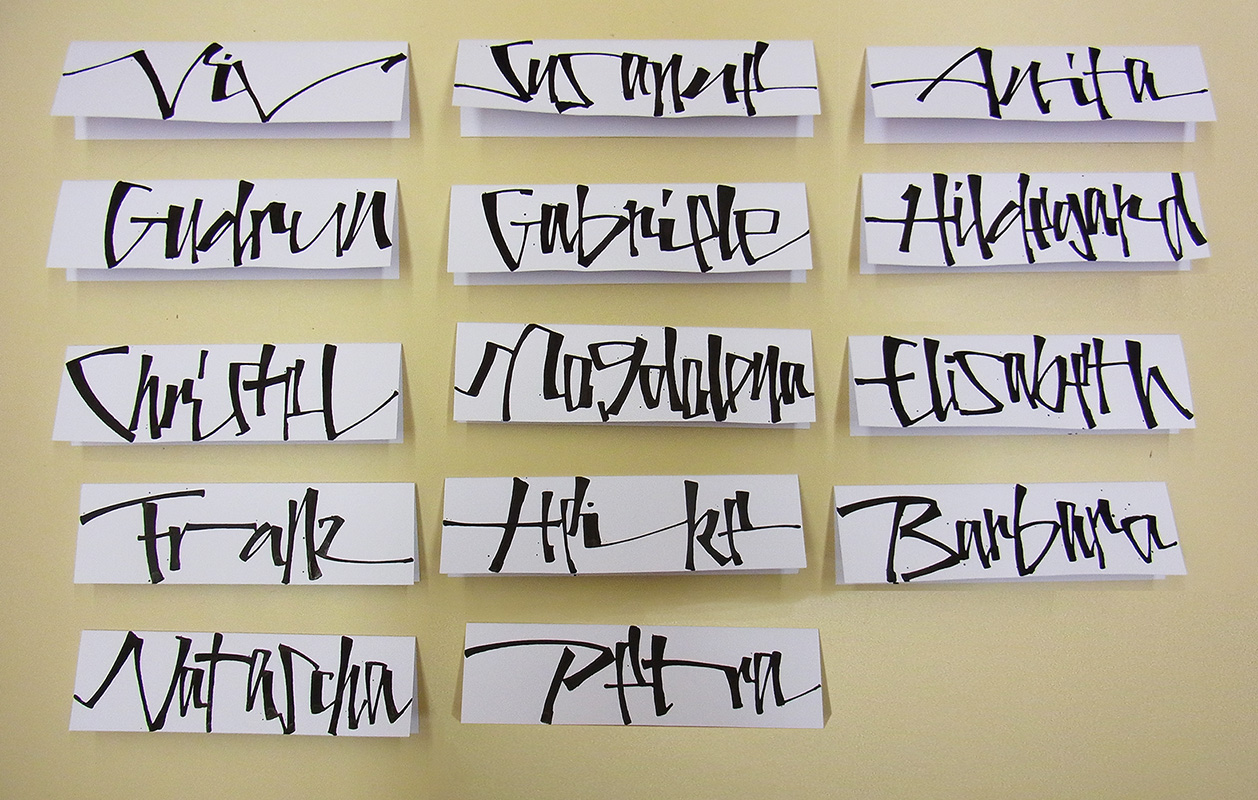 Viv
Susanne
Anita
Gudrun
Gabriele
Hildegard
Christel
Magdalena
Elisabeth
Frank
Heike
Barbara
Natascha
Petra